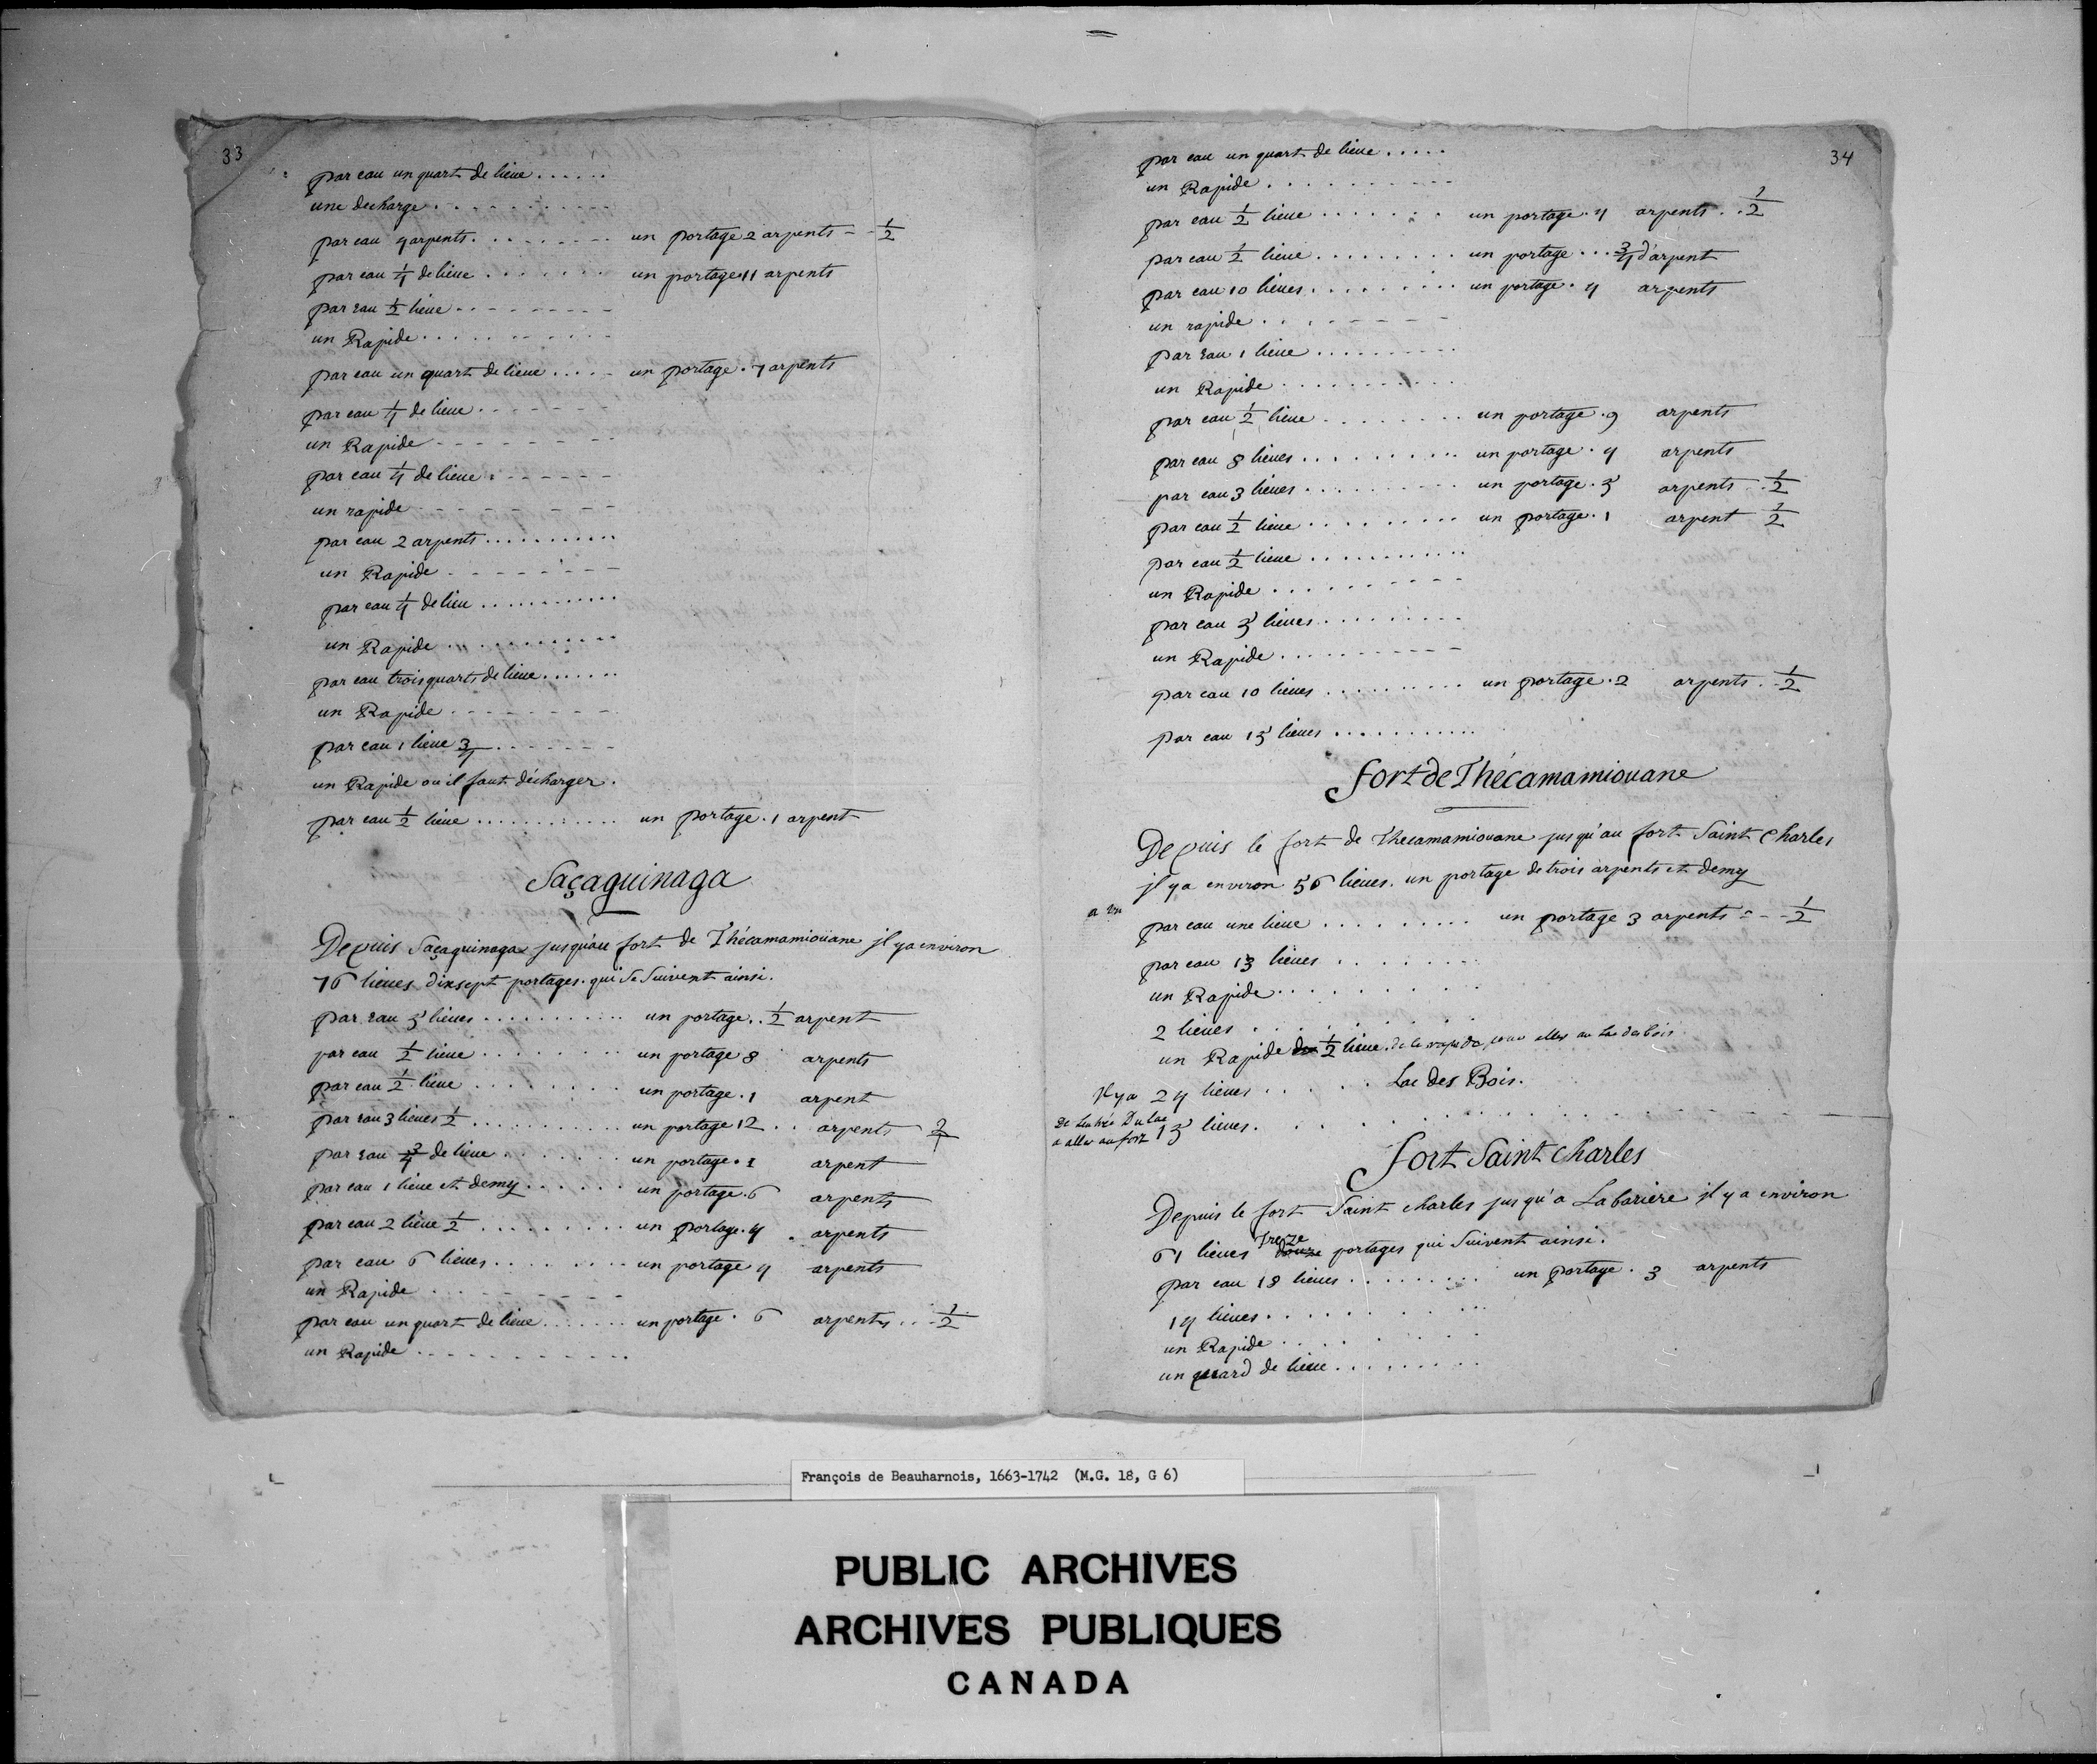 33
par eau un quart de lieue ......
une decharge ..........
par eau 4 arpents ......... un portage 2 arpents -- 1/2
par eau 1/4 de lieue ....... un portage 11 arpents
par eau 1/2 lieue .........
un Rapide ..........
par eau un quart de lieue ..... un portage . 7 arpents
par eau 1/4 de lieue .......
un Rapide ........
par eau 1/4 de lieue .......
un rapide ........
par eau 2 arpents ...........
un Rapide ........
par eau 1/4 de lieu ............
un Rapide ...........
par eau trois quarts de lieue .......
un Rapide ........
par eau 1 lieue 3/4 .......
un Rapide ou il faut décharger .
par eau 1/2 lieue ............ un portage . 1 arpent
Saçaguinaga
Depuis Saçaguinaga jusqu'au fort de Thécamamioüane jl y a environ
76 lieues dixsept portages . qui se suivent ainsi .
par eau 5 lieues .......... un portage .. 1/2 arpent
par eau 1/2 lieue ........ un portage 8 arpents
par eau 1/2 lieue ........ un portage . 1 arpent
par eau 3 lieues 1/2 ........... un portage 12 .. arpents
par eau 3/4 de lieue ....... un portage . 1 arpent
par eau 1 lieue et demy ...... un portage . 6 arpents
par eau 2 lieue 1/2 ......... un portage . 4 . arpents
par eau 6 lieues ........ un portage 4 arpents
un Rapide ........
par eau un quart de lieue ....... un portage . 6 arpents ... 1/2
un Rapide ............
34
par eau un quart de lieue .....
un Rapide ..........
par eau 1/2 lieue ....... un portage . 4 arpents .. 1/2
par eau 1/2 lieue ......... un portage ... 3/4 d'arpent
par eau 10 lieues ......... un portage . 4 arpents
un rapide ........
par eau 1 lieue ..........
un Rapide ...........
par eau 1/2 lieue ........ un portage . 9 arpents
par eau 8 lieues .......... un portage . 4 arpents
par eau 3 lieues .......... un portage . 5 arpents .. 1/2
par eau 1/2 lieue ......... un portage . 1 arpent 1/2
par eau 1/2 lieue ...........
un Rapide .........
par eau 5 lieues .........
un Rapide ..........
par eau 10 lieues .......... un portage . 2 arpents .. 1/2
par eau 15 lieues ...........
fort de Thécamamiouane
Depuis le fort de Thecamamiouane jusqu'au fort Saint Charles
jl y a environ 56 lieues . un portage de trois arpents et demy
a un
par eau une lieue ......... un portage 3 arpents --- 1/2
par eau 13 lieues .......
un Rapide .........
2 lieues ........
un Rapide de 1/2 lieue . de le rapide pour aller au Lac des bois
Il y a 24 lieues ..... Lac Des Bois .
De Lentrée Du lac
a aller au fort 15 lieues .....
fort Saint Charles
Depuis le fort Saint charles jusqu'a Labariere jl y a environ
Treze
61 lieues douze portages qui Suivent ainsi .
par eau 18 lieues ........ un portage . 3 arpents
14 lieues .........
un Rapide .......
un quard de lieue .........
François de Beauharnois, 1663-1742 (M.G. 18, G 6)
PUBLIC ARCHIVES
ARCHIVES PUBLIQUES
CANADA